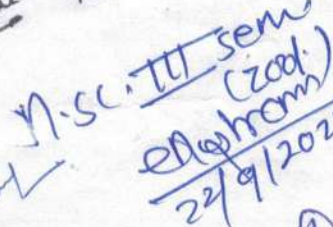 M.Sc. III Sem
(Zool.)
22/9/202